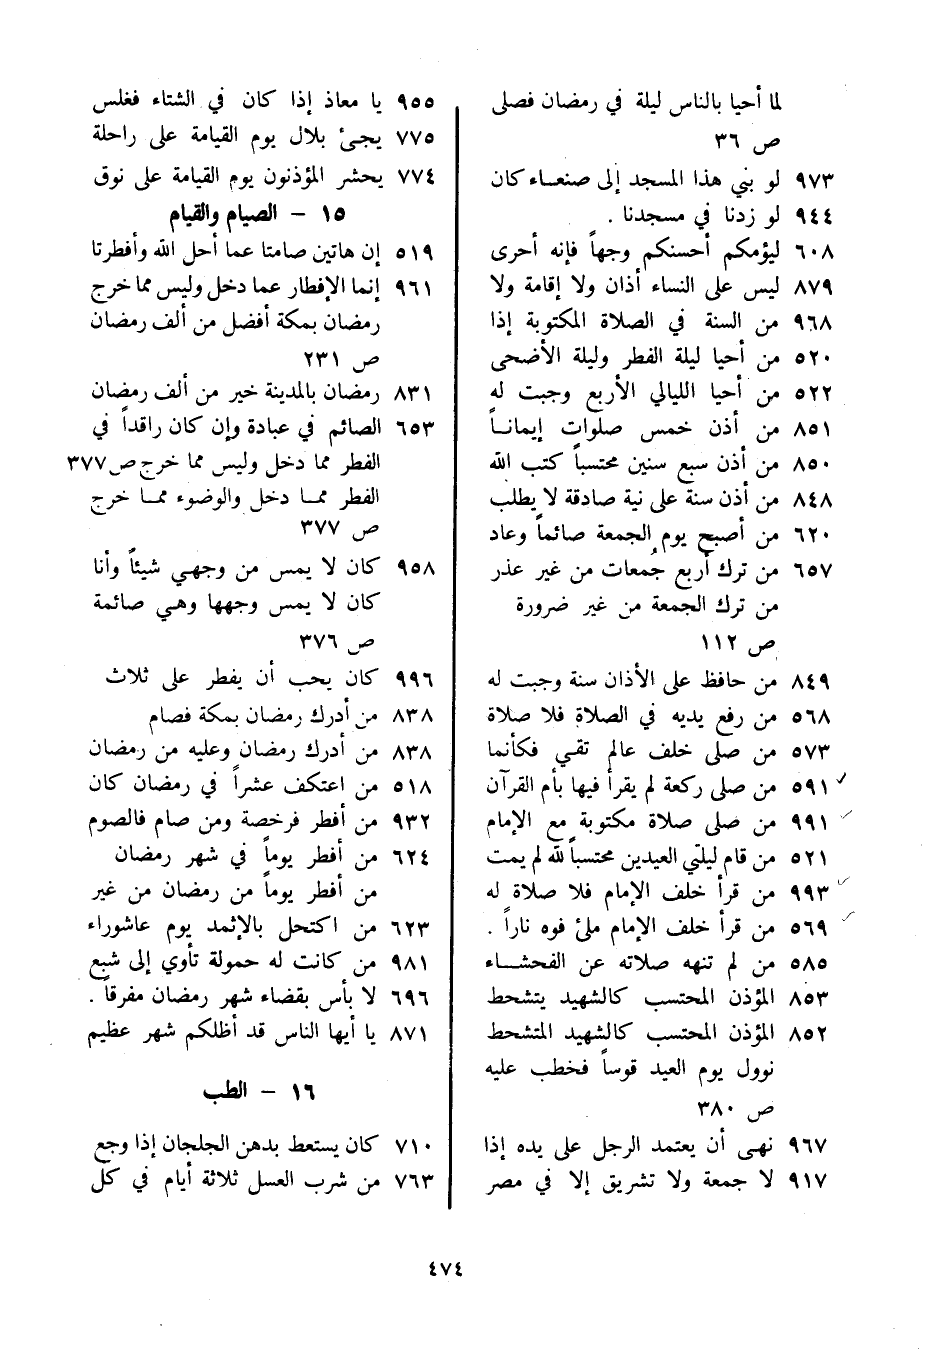 لما أحيا بالناس ليلة في رمضان فصلى
ص ٣٦
٩٧٣ لو بني هذا المسجد إلى صنعاء كان
٩٤٤ لو زدنا في مسجدنا .
٦٠٨ ليؤمكم أحسنكم وجهاً فإنه أحرى
٨٧٩ ليس على النساء أذان ولا إقامة ولا
٩٦٨ من السنة في الصلاة المكتوبة إذا
٥٢٠ من أحيا ليلة الفطر وليلة الأضحى
٥٢٢ من أحيا الليالي الأربع وجبت له
٨٥١ من أذن خمس صلوات إيمانـاً
٨٥٠ من أذن سبع سنين محتسباً كتب الله
٨٤٨ من أذن سنة على نية صادقة لا يطلب
٦٢٠ من أصبح يوم الجمعة صائماً وعاد
٦٥٧ من ترك أربع جُمعات من غير عذر
من ترك الجمعة من غير ضرورة
ص ١١٢
٨٤٩ من حافظ على الأذان سنة وجبت له
٥٦٨ من رفع يديه في الصلاة فلا صلاة
٥٧٣ من صلى خلف عالم تقي فكأنما
٥٩١ من صلى ركعة لم يقرأ فيها بأم القرآن
٩٩١ من صلى صلاة مكتوبة مع الإمام
٥٢١ من قام ليلتي العيدين محتسباً لله لم يمت
٩٩٣ من قرأ خلف الإمام فلا صلاة له
٥٦٩ من قرأ خلف الإمام ملئ فوه ناراً .
٥٨٥ من لم تنهه صلاته عن الفحشـاء
٨٥٣ المؤذن المحتسب كالشهيد يتشحط
٨٥٢ المؤذن المحتسب كالشهيد المتشحط
نوول يوم العيد قوساً فخطب عليه
ص ٣٨٠
٩٦٧ نهى أن يعتمد الرجل على يده إذا
٩١٧ لا جمعة ولا تشريق إلا في مصر
٩٥٥ يا معاذ إذا كان في الشتاء فغلس
٧٧٥ يجئ بلال يوم القيامة على راحلة
٧٧٤ يحشر المؤذنون يوم القيامة على نوق
١٥ – الصيام والقيام
٥١٩ إن هاتين صامتا عما أحل الله وأفطرتا
٩٦١ إنما الإفطار عما دخل وليس مما خرج
رمضان بمكة أفضل من ألف رمضان
ص ٢٣١
٨٣١ رمضان بالمدينة خير من ألف رمضان
٦٥٣ الصائم في عبادة وإن كان راقداً في
الفطر مما دخل وليس مما خرج ص ٣٧٧
الفطر ممـا دخل والوضوء ممـا خرج
ص ٣٧٧
٩٥٨ كان لا يمس من وجهي شيئاً وأنا
كان لا يمس وجهها وهي صائمة
ص ٣٧٦
٩٩٦ كان يحب أن يفطر على ثلاث
٨٣٨ من أدرك رمضان بمكة فصام
٨٣٨ من أدرك رمضان وعليه من رمضان
٥١٨ من اعتكف عشراً في رمضان كان
٩٣٢ من أفطر فرخصة ومن صام فالصوم
٦٢٤ من أفطر يوماً في شهر رمضان
من أفطر يوماً من رمضان من غير
٦٢٣ من اكتحل بالإثمد يوم عاشوراء
٩٨١ من كانت له حمولة تأوي إلى شبع
٦٩٦ لا بأس بقضاء شهر رمضان مفرقاً .
٨٧١ يا أيها الناس قد أظلكم شهر عظيم
١٦ – الطب
٧١٠ كان يستعط بدهن الجلجان إذا وجع
٧٦٣ من شرب العسل ثلاثة أيام في كل
٤٧٤